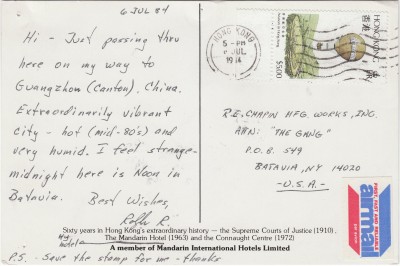 6 JUL 84
Hi - Just passing thru
here on my way to
Guangzhou (Canton), China.
Extraordinarily vibrant
city - hot (mid-80's) and
very humid. I feel strange-
midnight here is Noon in
Batavia. Best Wishes,
HONG KONG
5 - PM
JUL
HONG KONG
香港
$500
R.E. CHAPIN MFG. WORKS, INC.
ATTN: "THE GANG"
P.O. BOX 549
BATAVIA, NY 14020
- U.S.A. -
airmail
Sixty years in Hong Kong's extraordinary history — the Supreme Courts of Justice (1910),
The Mandarin Hotel (1963) and the Connaught Centre (1972)
My hotel
A member of Mandarin International Hotels Limited
P.S. - Save the stamp for me - thanks